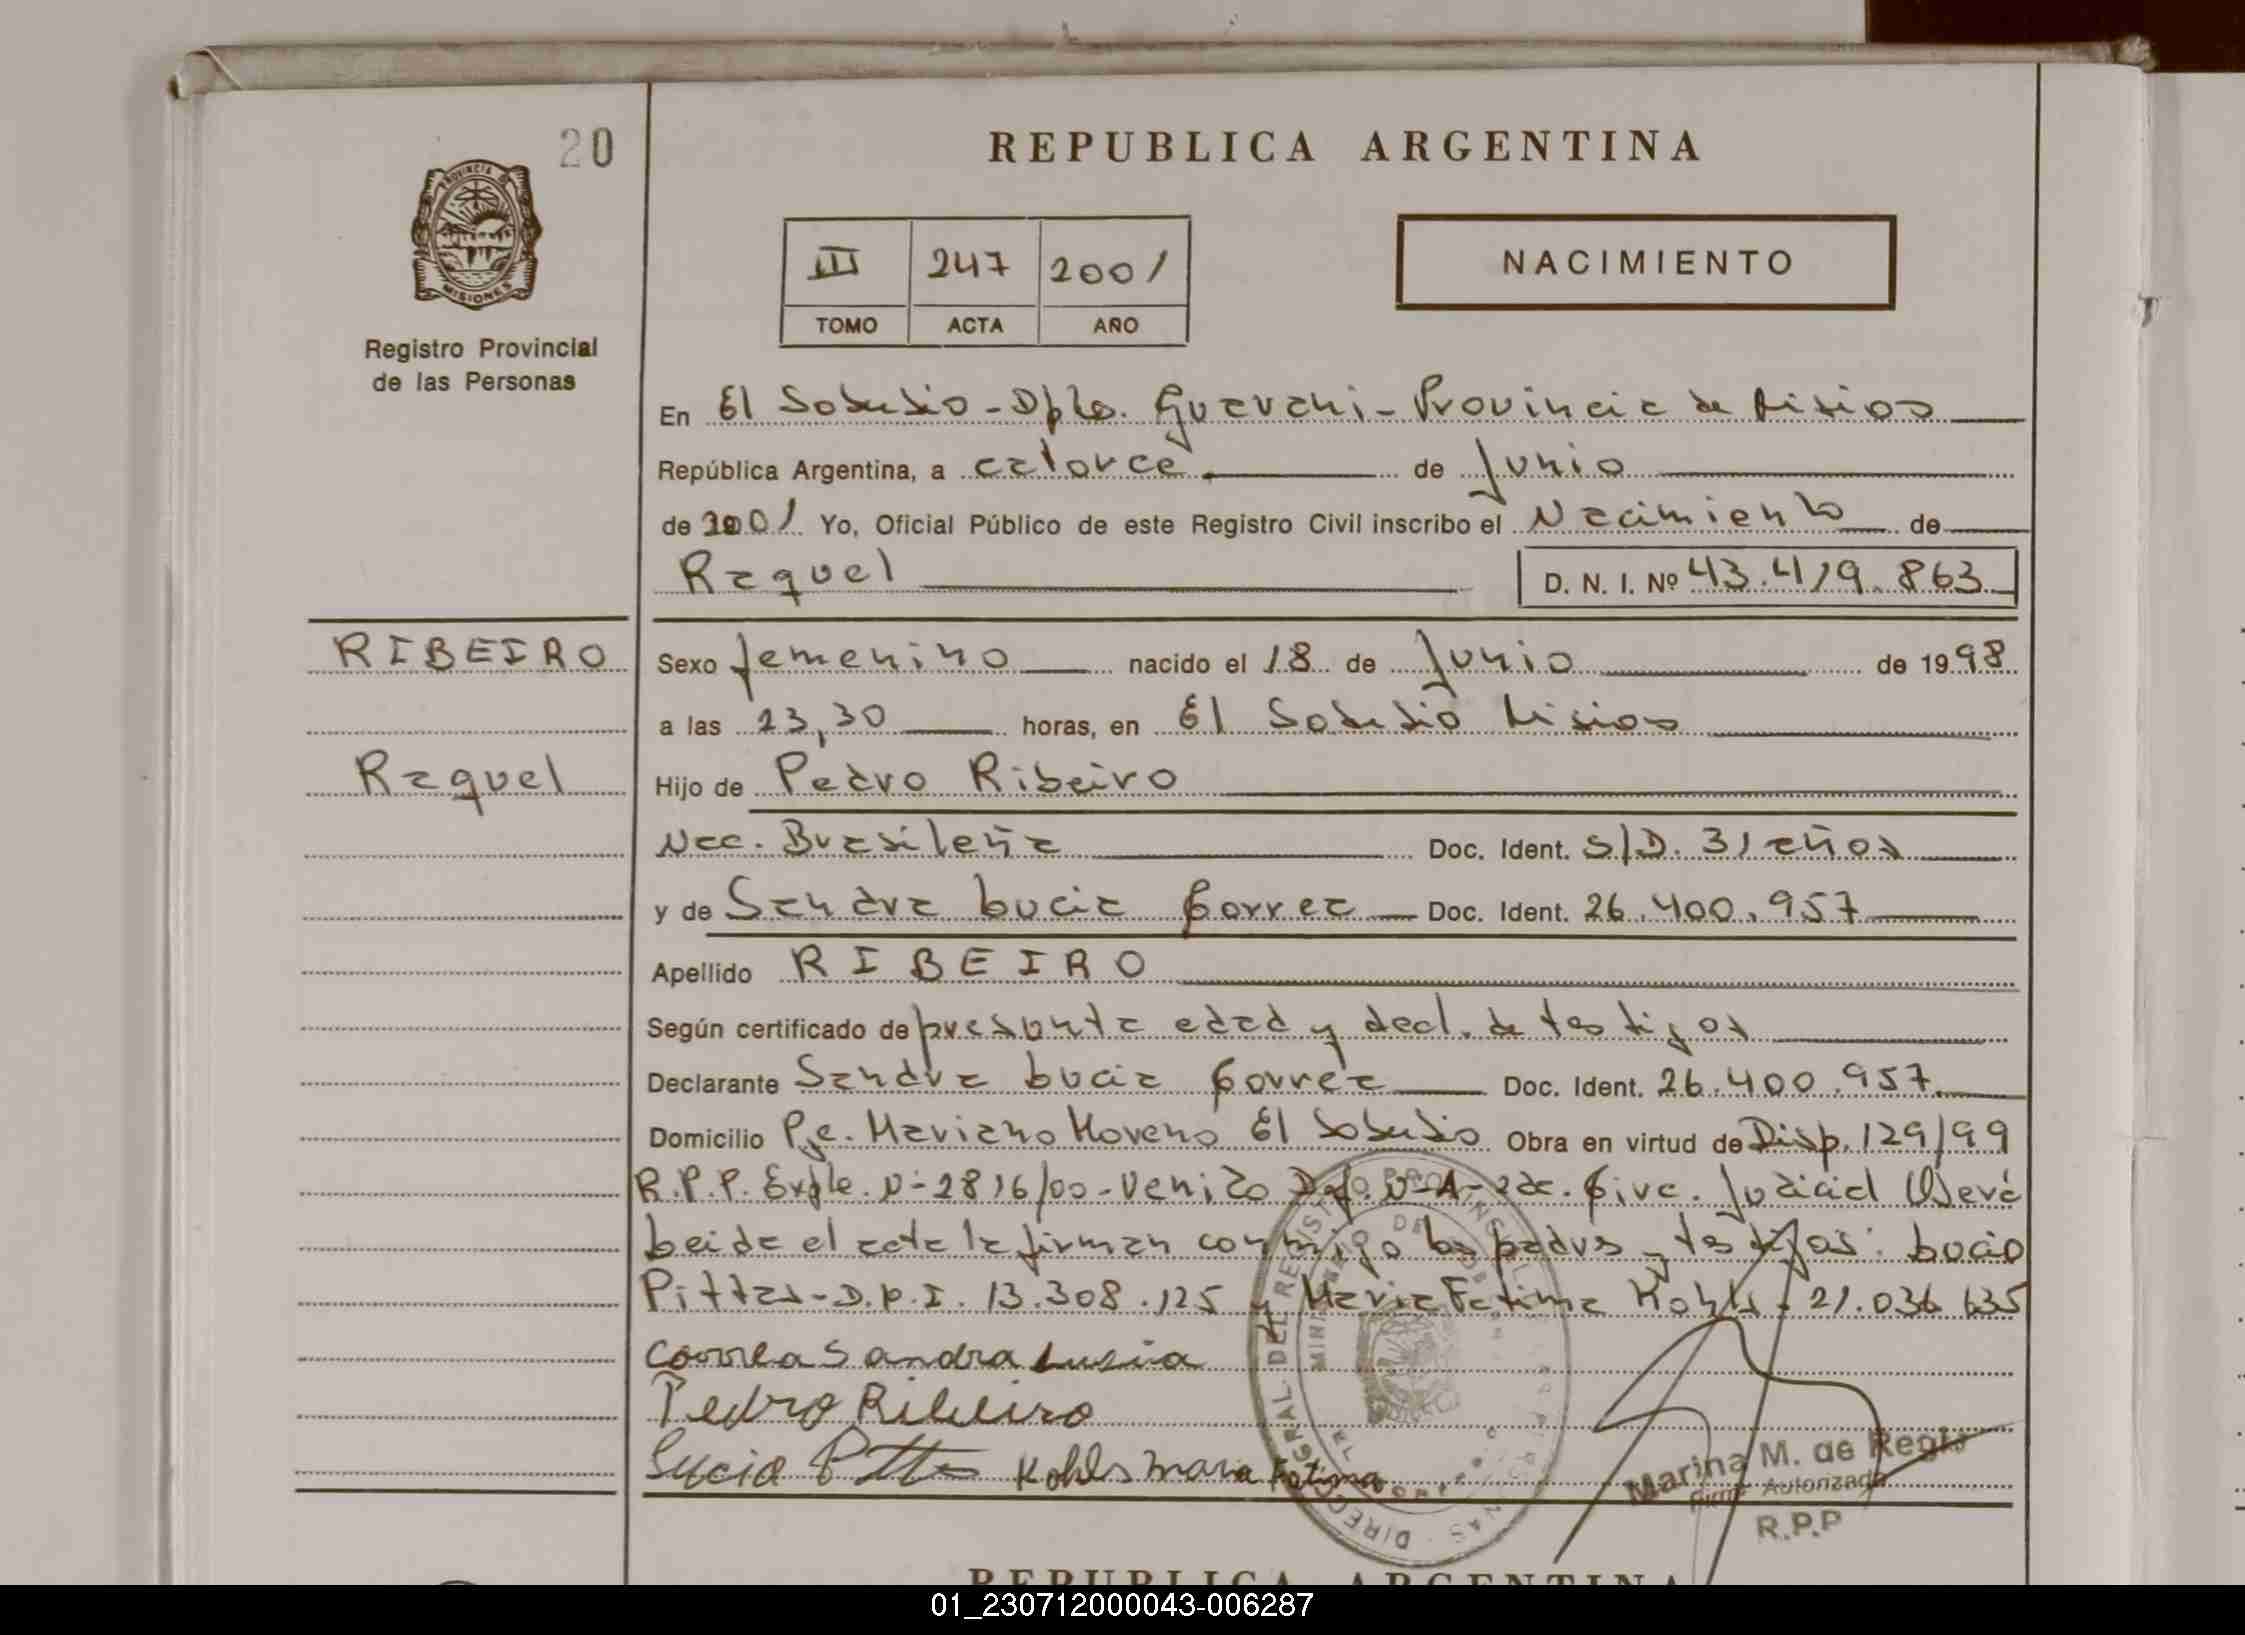 20
REPUBLICA ARGENTINA
PROVINCIA DE
MISIONES
Registro Provincial
de las Personas
III 247 2001
TOMO ACTA AÑO
NACIMIENTO
En El Soberbio - Dpto. Guarani - Provincia de Misios
República Argentina, a catorce de Junio
de 2001 Yo, Oficial Público de este Registro Civil inscribo el Nacimiento de
Raquel D. N. I. Nº 43.419.863
RIBEIRO
Raquel
Sexo femenino nacido el 18 de Junio de 1998
a las 23,30 horas, en El Soberbio Misios
Hijo de Pedro Ribeiro
Nac. Brasileña Doc. Ident. S/D. 31 años
y de Sandra Lucia Correa Doc. Ident. 26.400.957
Apellido RIBEIRO
Según certificado de presunta edad y decl. de testigos
Declarante Sandra Lucia Correa Doc. Ident. 26.400.957
Domicilio Pje. Mariano Moreno El Soberbio Obra en virtud de Disp. 129/99
R.P.P. Expte. N-2816/00 - Venido Def. N-1-2da. Circ. Judicial Oberá
Leida el acta la firman conmigo los padres y testigos: Lucio
Pittas - D.N.I. 13.308.125 y Maria Fatima Kohls - 21.036.635
Correa Sandra Lucia
Pedro Ribeiro
Kohls Maria Fatima
Marina M. de Regis
Firma Autorizada
R.P.P
REPUBLICA ARGENTINA
01_230712000043-006287